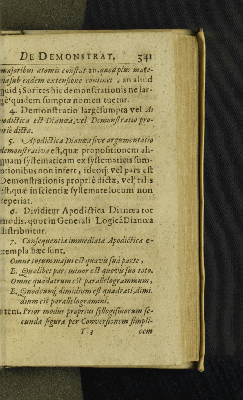 DE DEMONSTRAT. 341
majoribus atomis constat an, quod plus mate-
sub eadem extensione continet, an aliud
quid; Sorites hic demonstrationis ne lar-
gè quidem sumpta nomen tuetur.
4. Demonstratio largè sumpta vel A-
podictica est Dianœa, vel Demonstratio pro-
priè dicta.
5. Apodictica Dianœa sive argumentatio
demonstrativa est, quæ propositionem ali-
quam systematicam ex systematis sum-
tionibus non infert, ideoq; vel pars est
Demonstrationis propriè dictæ, vel talis
est, quæ in scientiæ systemate locum non
reperiat.
6. Dividitur Apodictica Dianœa tot
modis, quot in Generali Logica Dianœa
distribuitur.
7. Consequentiæ immediatæ Apodicticæ e-
xempla hæc sunt.
Omne totum majus est quavis sua parte,
E. Quælibet pars minor est quovis suo toto.
Omne quadratum est parallelogrammum,
E. Quodcunq; dimidium est quadrati, dimi-
dium est parallelogrammi.
Item. Prior modus proprius syllogismorum se-
cundæ figuræ per Conversionem simpli-
T 3 cem